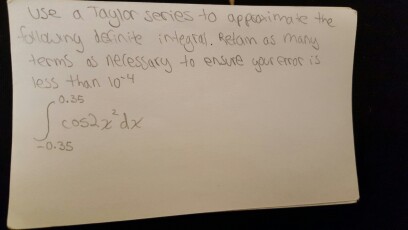 Use a Taylor series to approximate the
following definite integral. Retain as many
terms as necessary to ensure your error is
less than 10⁻⁴
∫_{-0.35}^{0.35} cos2x²dx